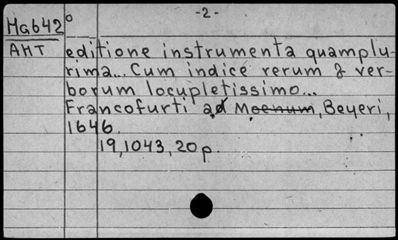 -2-
Ma642°
AHT editione instrumenta quamplu-
rima... Cum indice rerum & ver-
borum locupletissimo...
Francofurti ad Moenum, Beyeri,
1646.
19,1043,20p.